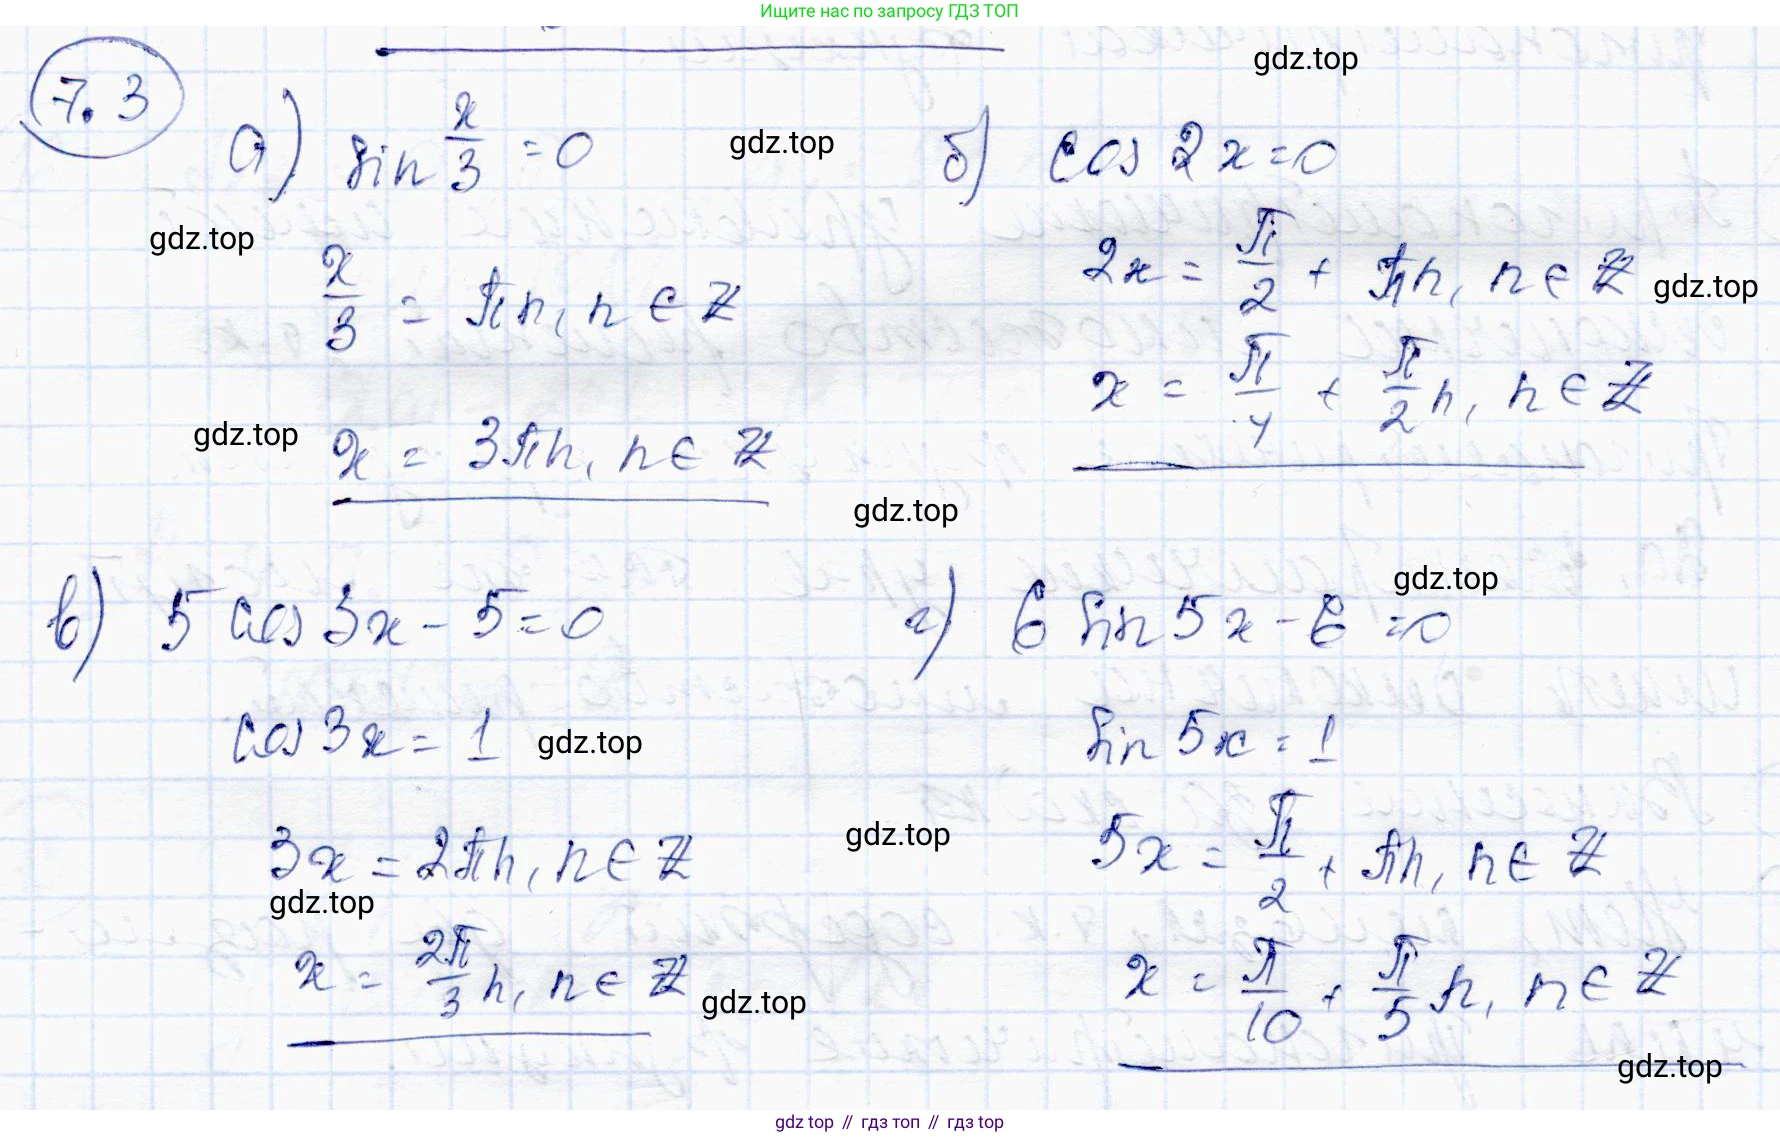 Ищите нас по запросу ГДЗ ТОП
7.3
gdz.top
а) sin x/3 = 0
gdz.top
б) cos 2x = 0
gdz.top
x/3 = πn, n ∈ Z
2x = π/2 + πn, n ∈ Z
gdz.top
x = π/4 + π/2 n, n ∈ Z
gdz.top
x = 3πn, n ∈ Z
gdz.top
gdz.top
в) 5 cos 3x - 5 = 0
г) 6 sin 5x - 6 = 0
cos 3x = 1
gdz.top
sin 5x = 1
gdz.top
3x = 2πn, n ∈ Z
5x = π/2 + πn, n ∈ Z
gdz.top
x = 2π/3 n, n ∈ Z
gdz.top
x = π/10 + π/5 n, n ∈ Z
gdz.top
gdz top // гдз топ // gdz top